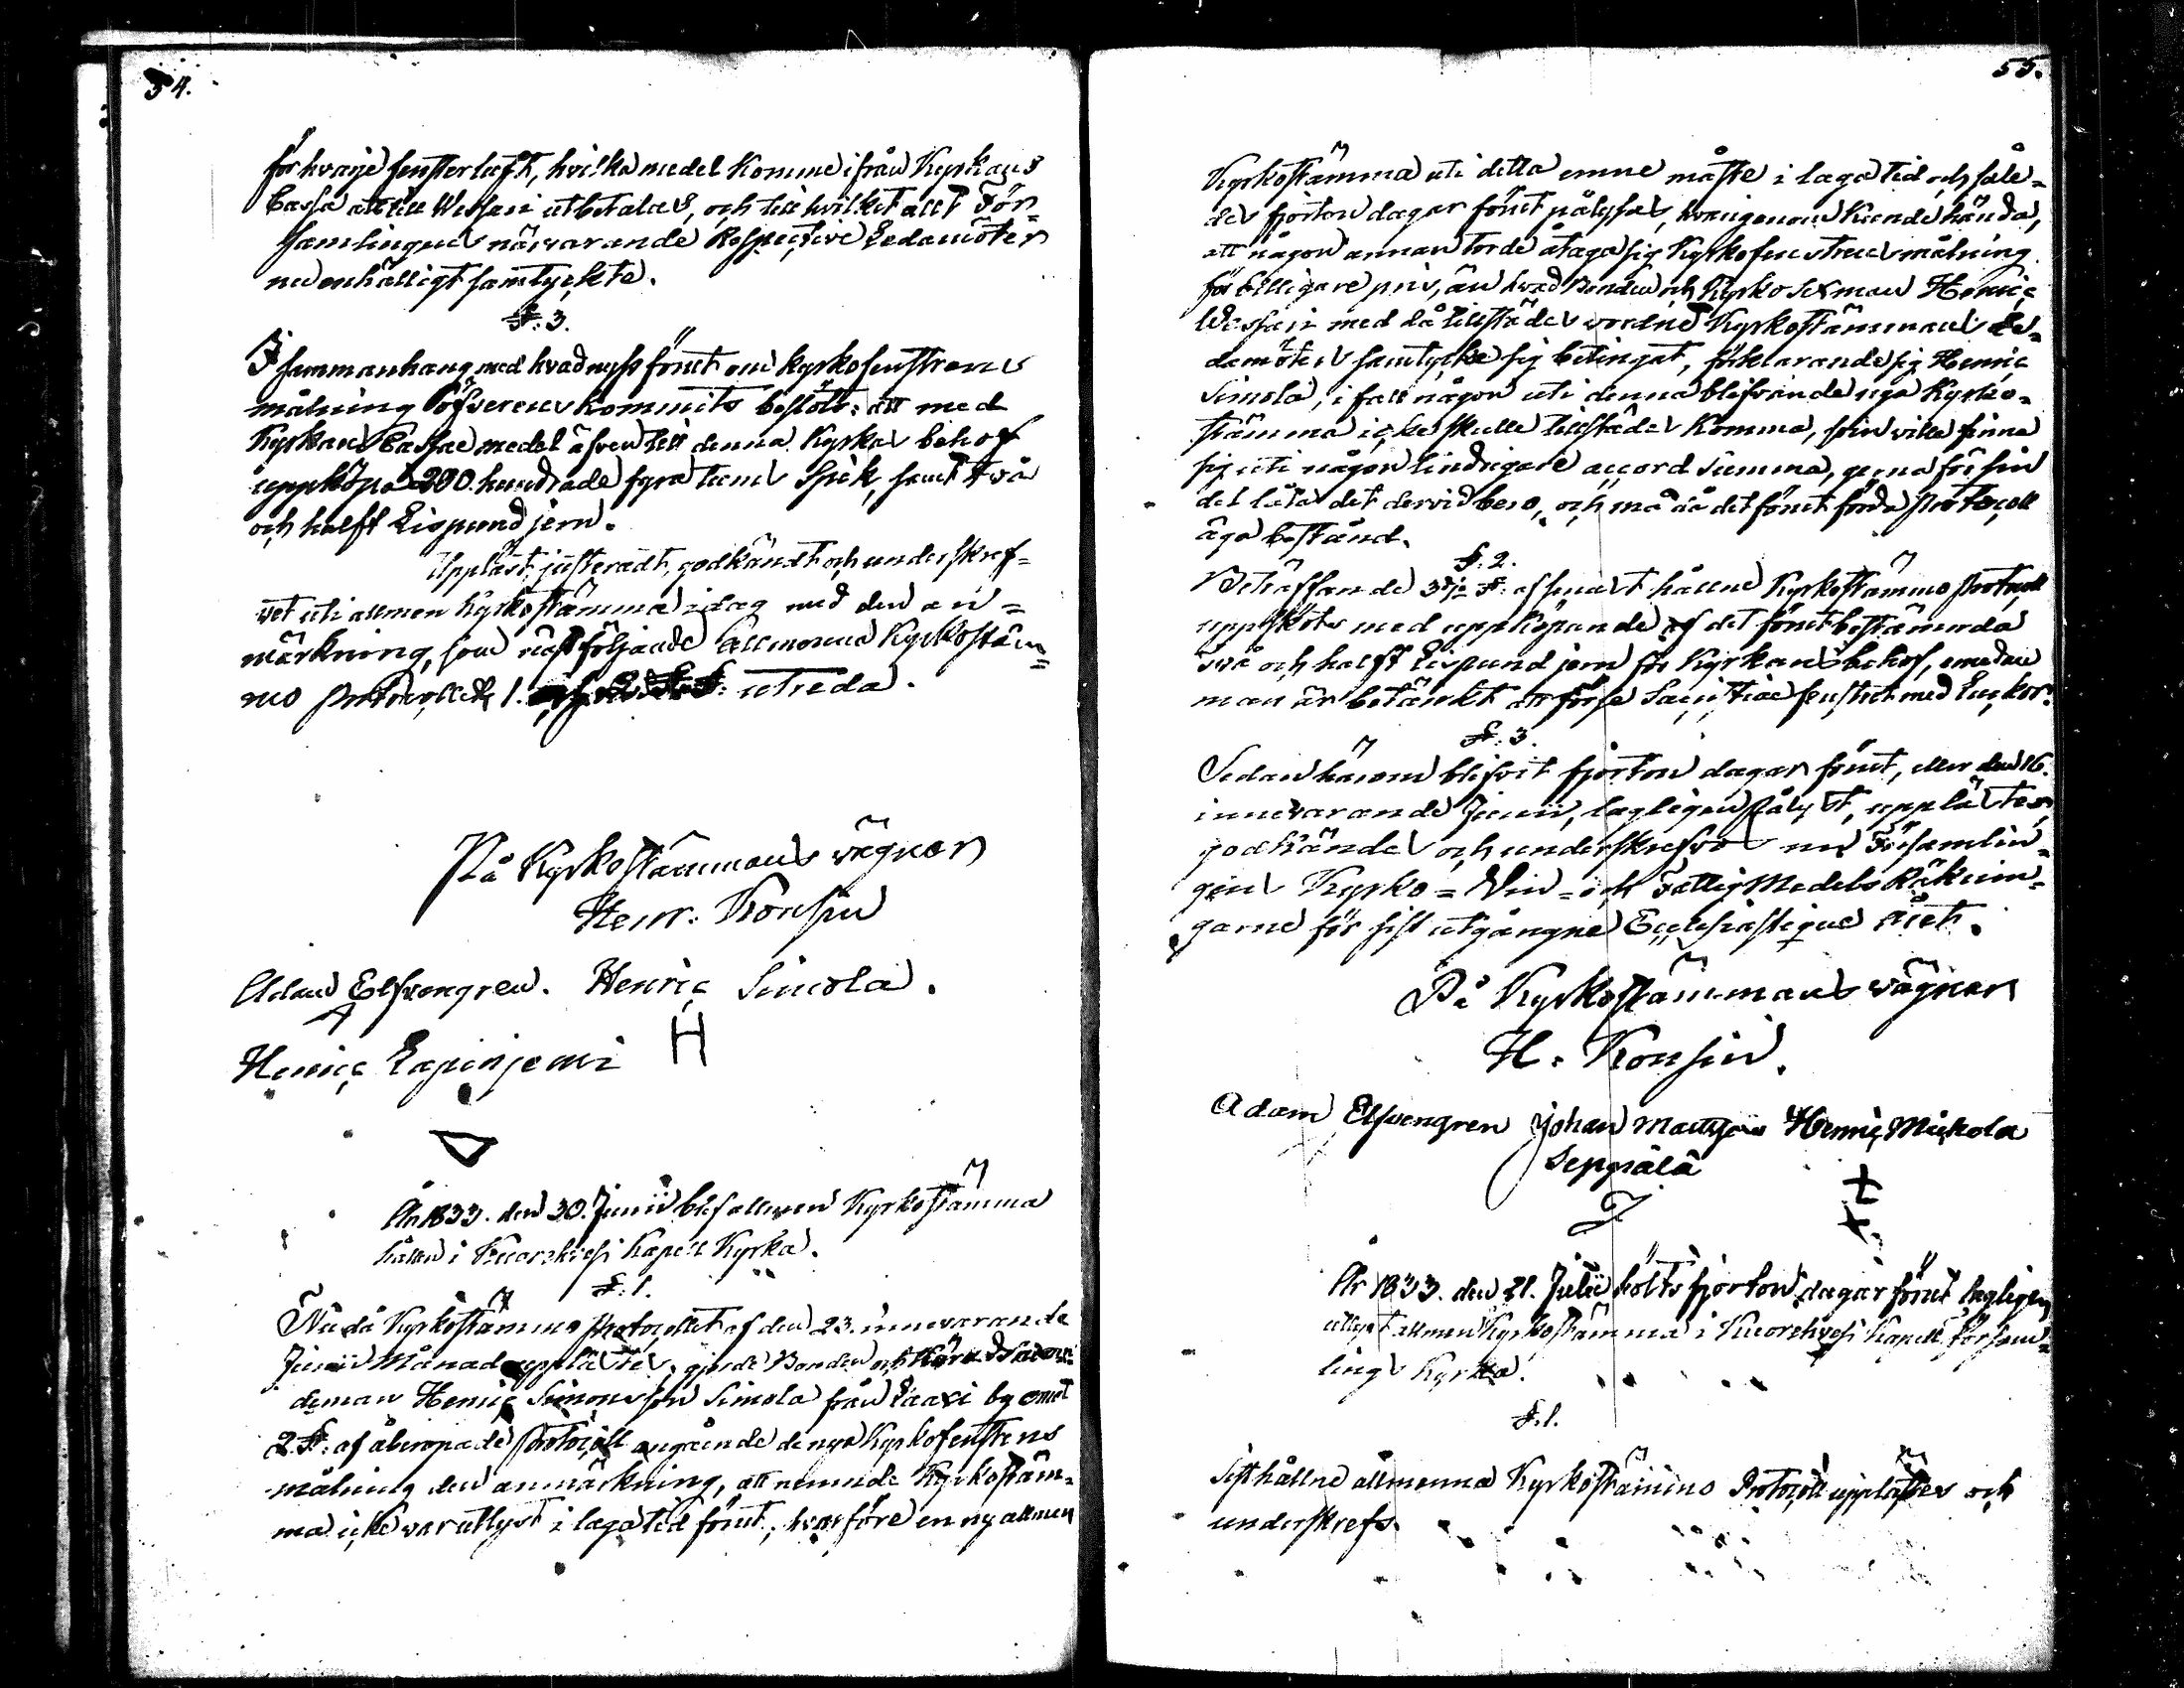 54.
för hvarje fensterluft, hvilka medel komme ifrån Kyrkans
Cassa att till Wessari utbetalas, och till hvilket allt För-
samlingens närvarande Respective Ledamöter
nu enhälligt samtyckte.
§: 3.
I sammanhang med hvad nyss förut om kyrkofenstrens
målning öfverenskommits beslöts: att med
Kyrkans Cassae medel äfven till denna Kyrkas behof
uppköpa 200. hundrade fyra tums Spik, samt två
och halft Lispund jern.
Uppläst, justeradt, godkändt och underskref-
vet uti allmän Kyrkostämma idag med den an-
märkning, som nästföljande Allmenna Kyrkostäm-
mo Protocollets 1. §: utreda.
På Kyrkostämmans vägnar
Henr: Konsin
Adam Elfvengren. Henric Simola.
H
Henric Lapinjemi
År 1833. den 30. Junii blef allmen Kyrkostämma
hållen i Kuorekvesi Kapell Kyrka.
§: 1.
Nu då Kyrkostämmo Protocollet af den 23. innevarande
Junii Månad upplästes, gjorde Bonden och
deman Henric Simonsson Simola från Laaxi by emot
2. §: af åberopade Protocoll angående de nya Kyrkofenstrens
målning den anmärkning, att nemnde Kyrkostäm-
ma icke var utlyst i laga tid förut, hvarföre en ny allmen
55.
Kyrkostämma uti detta emne måste i laga tid och såle-
des fjorton dagar förut pålysas, hvarigenom kunde hända,
att någon annan torde åtaga sig Kyrkofenstrens målning
för billigare pris, än hvad Bonden och Kyrko Sexman Henric
Wessari med då tillstädes vordne Kyrkostämmans Le-
damöters samtycke sig betingat, förklarande sig Henric
Simola, i fall någon uti denna blifvande nya Kyrko-
stämma icke skulle tillstädes komma, som ville finna
sig uti någon lindrigare accord summa, gerna för sin
del låta det dervid bero, och må då det förut förda Protocoll
äga bestånd.
§: 2.
Beträffande 3dje §: af senast hållne Kyrkostämmo Protocoll
uppskötes med uppköpande af det förut bestämda
två och halft Lispund jern för Kyrkans behof, emedan
man är betänkt att förse Sacristiae fenstret med Luckor.
§: 3.
Sedan härom blifvit fjorton dagar förut, eller den 16.
innevarande Junii, lagligen pålyst, upplästes,
godkändes och underskrefvos nu Församlin-
gens Kyrko- Vin- och Fattig Medels Räknin-
garne för sist utgångne Ecclesiastique året.
På Kyrkostämmans vägnar
H. Konsin.
Adam Elfvengren Johan Mattsson Henric Mickola
Seppälä
År 1833. den 21. Julii hölts fjorton dagar förut lagligen
utlyst allmen Kyrkostämma i Kuorekvesi Kapell Försam-
lings Kyrka.
§: 1.
Sist hållne allmenna Kyrkostämmo Protocoll upplästes och
underskrefs.